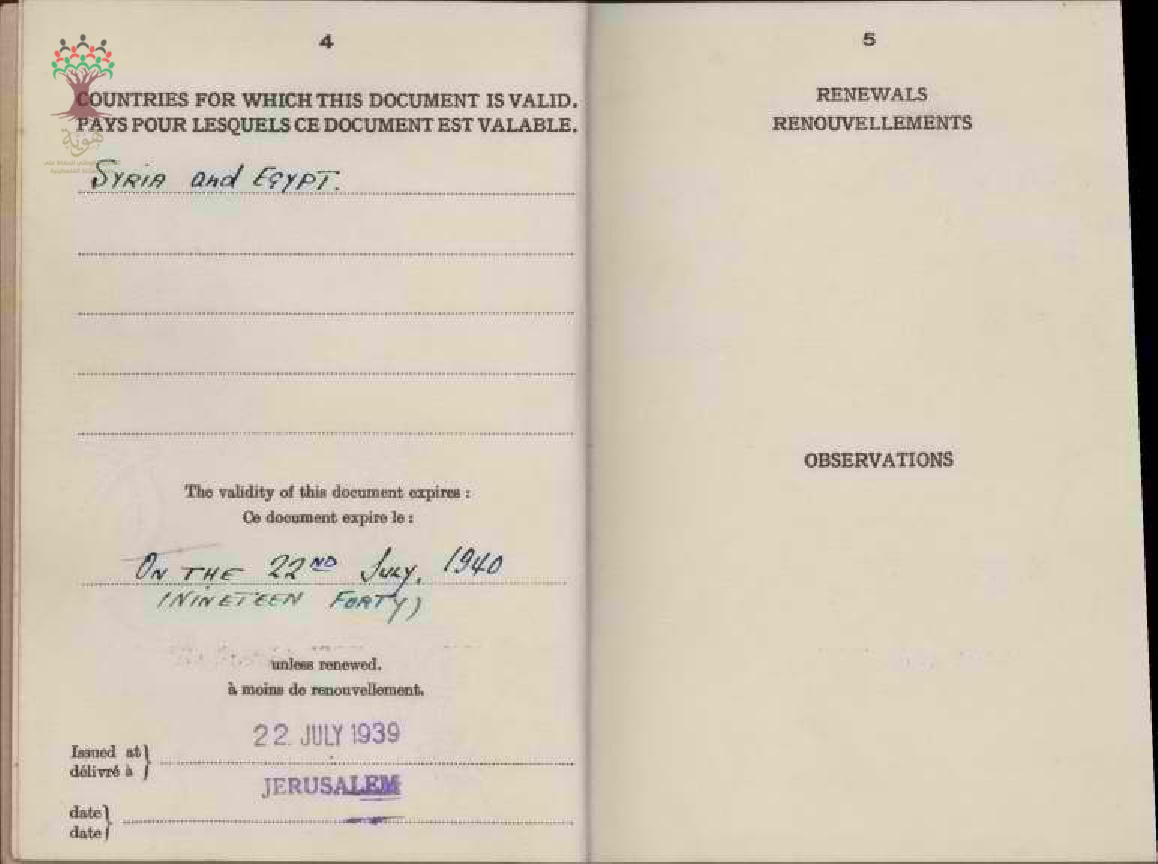 4
COUNTRIES FOR WHICH THIS DOCUMENT IS VALID.
PAYS POUR LESQUELS CE DOCUMENT EST VALABLE.
هوية
SYRIA and EGYPT.
The validity of this document expires :
Ce document expire le :
ON THE 22ND July, 1940
(NINETEEN FORTY)
unless renewed.
à moins de renouvellement.
22 JULY 1939
Issued at
délivré à
JERUSALEM
date
date
5
RENEWALS
RENOUVELLEMENTS
OBSERVATIONS